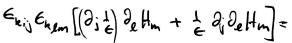 ϵₖᵢⱼ ϵₖₗₘ [(∂ⱼ 1/ϵ) ∂ₗHₘ + 1/ϵ ∂ⱼ∂ₗHₘ] =